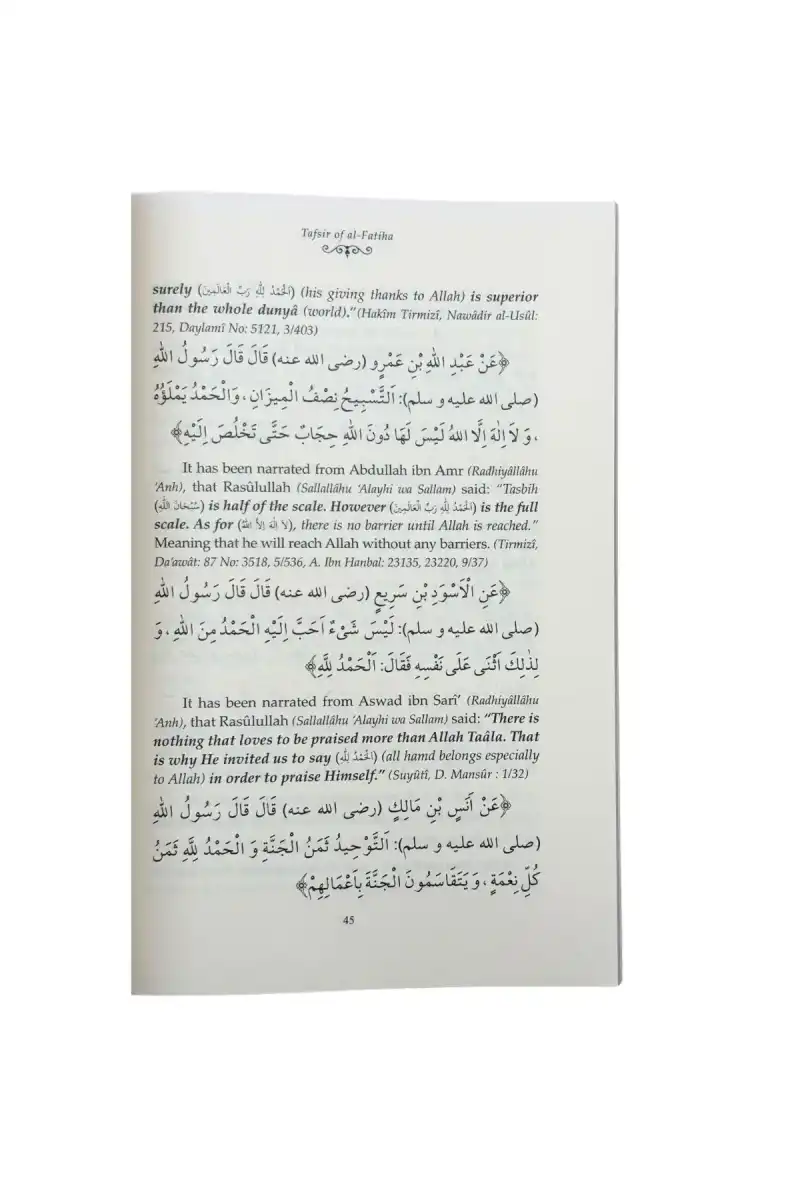 Tafsir of al-Fatiha
surely (اَلْحَمْدُ لِلّٰهِ رَبِّ الْعَالَمِينَ) (his giving thanks to Allah) is superior
than the whole dunyâ (world)."(Hakîm Tirmizî, Nawâdir al-Usûl:
215, Daylamî No: 5121, 3/403)
﴿عَنْ عَبْدِ اللّٰهِ بْنِ عَمْرٍو (رضى الله عنه) قَالَ قَالَ رَسُولُ اللّٰهِ
(صلى الله عليه و سلم): اَلتَّسْبِيحُ نِصْفُ الْمِيزَانِ، وَالْحَمْدُ يَمْلَؤُهُ
، وَ لَا اِلٰهَ اِلَّا اللهُ لَيْسَ لَهَا دُونَ اللّٰهِ حِجَابٌ حَتَّى تَخْلُصَ اِلَيْهِ﴾
It has been narrated from Abdullah ibn Amr (Radhiyâllâhu
'Anh), that Rasûlullah (Sallallâhu 'Alayhi wa Sallam) said: "Tasbîh
(سُبْحَانَ اللّٰهِ) is half of the scale. However (اَلْحَمْدُ لِلّٰهِ رَبِّ الْعَالَمِينَ) is the full
scale. As for (لَا اِلٰهَ اِلاَّ اللّٰهُ), there is no barrier until Allah is reached."
Meaning that he will reach Allah without any barriers. (Tirmizî,
Da'awât: 87 No: 3518, 5/536, A. Ibn Hanbal: 23135, 23220, 9/37)
﴿عَنِ الْاَسْوَدِ بْنِ سَرِيعٍ (رضى الله عنه) قَالَ قَالَ رَسُولُ اللّٰهِ
(صلى الله عليه و سلم): لَيْسَ شَىْءٌ اَحَبَّ اِلَيْهِ الْحَمْدُ مِنَ اللّٰهِ، وَ
لِذٰلِكَ اَثْنَى عَلَى نَفْسِهِ فَقَالَ: اَلْحَمْدُ لِلّٰهِ﴾
It has been narrated from Aswad ibn Sarî' (Radhiyâllâhu
'Anh), that Rasûlullah (Sallallâhu 'Alayhi wa Sallam) said: "There is
nothing that loves to be praised more than Allah Taâla. That
is why He invited us to say (اَلْحَمْدُ لِلّٰهِ) (all hamd belongs especially
to Allah) in order to praise Himself." (Suyûtî, D. Mansûr : 1/32)
﴿عَنْ اَنَسِ بْنِ مَالِكٍ (رضى الله عنه) قَالَ قَالَ رَسُولُ اللّٰهِ
(صلى الله عليه و سلم): اَلتَّوْحِيدُ ثَمَنُ الْجَنَّةِ وَ الْحَمْدُ لِلّٰهِ ثَمَنُ
كُلِّ نِعْمَةٍ، وَ يَتَقَاسَمُونَ الْجَنَّةَ بِاَعْمَالِهِمْ﴾
45